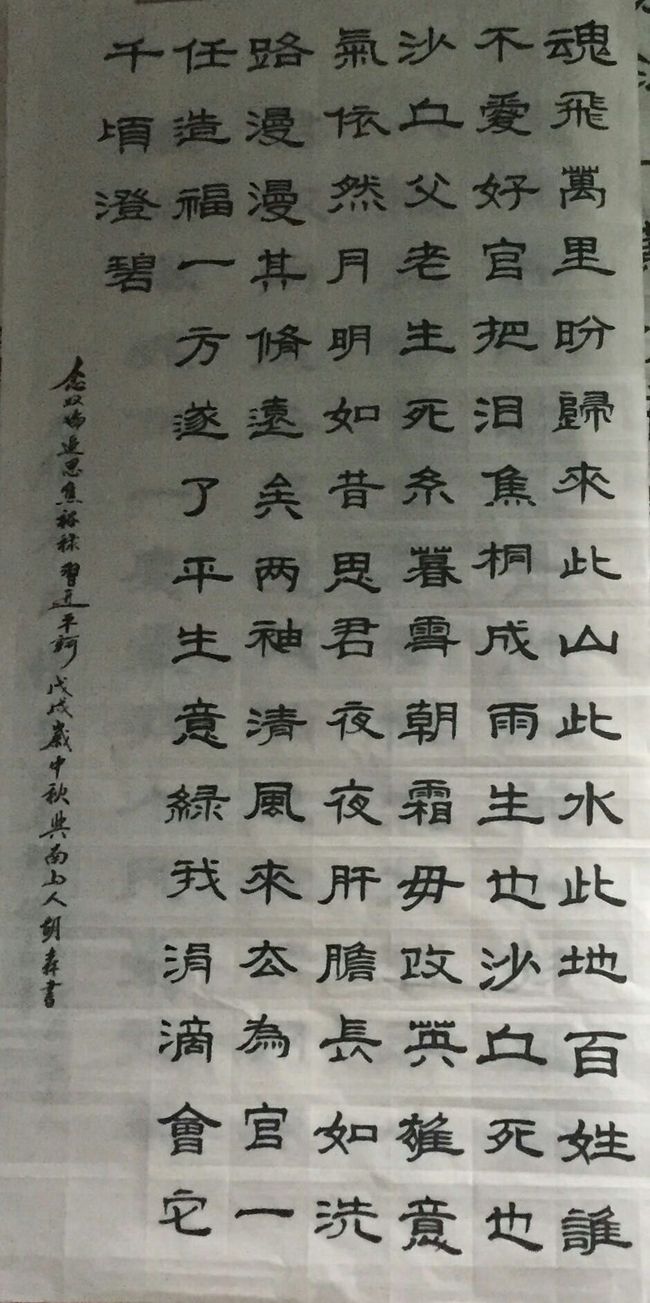 魂飛萬里盼歸來此山此水此地百姓誰
不愛好官把泪焦桐成雨生也沙丘死也
沙丘父老生死系暮雪朝霜毋改英雄意
氣依然月明如昔思君夜夜肝膽長如洗
路漫漫其脩遠矣两袖清風來去為官一
任造福一方遂了平生意緑我涓滴會它
千頃澄碧
念奴嬌追思焦裕禄習近平詞戊戌歲中秋南山人胡森書